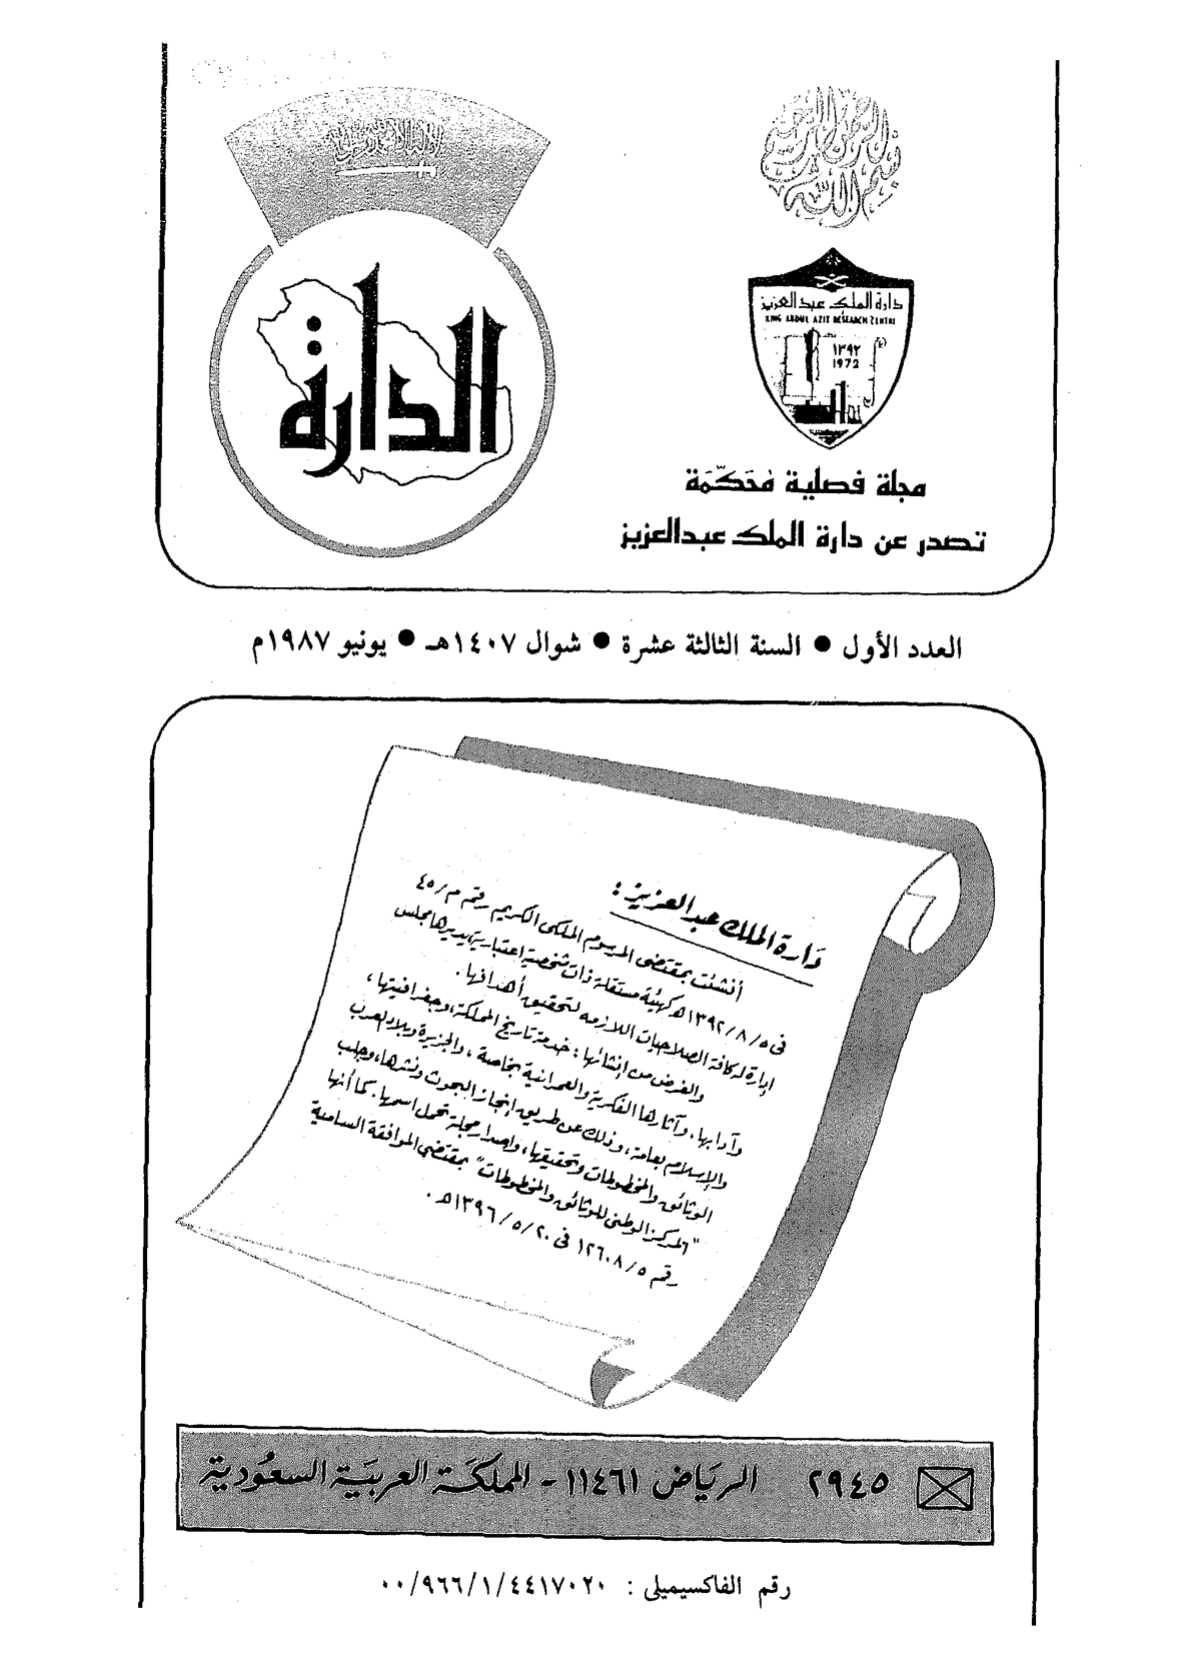 بسم الله الرحمن الرحيم
لا إله إلا الله محمد رسول الله
الدارة
دارة الملك عبدالعزيز
KING ABDUL AZIZ RESEARCH CENTRE
١٣٩٢
1972
مجلة فصلية مُحَكَّمَة
تصدر عن دارة الملك عبدالعزيز
العدد الأول ● السنة الثالثة عشرة ● شوال ١٤٠٧هـ ● يونيو ١٩٨٧م
دَارة الملك عبد العزيز :
أنشئت بمقتضى المرسوم الملكى الكريم رقم م/٤٥
فى ١٣٩٢/٨/٥هـ كهيئة مستقلة ذات شخصية اعتبارية، يديرها مجلس
إدارة له كافة الصلاحيات اللازمة لتحقيق أهدافها .
والغرض من إنشائها : خدمة تاريخ المملكة، وجغرافيتها ،
وآدابها، وآثارها الفكرية والعمرانية بخاصة ، والجزيرة وبلاد العرب
والإسلام بعامة ، وذلك عن طريق إنجاز البحوث ونشرها، وجلب
الوثائق والمخطوطات وتحقيقها ، وإصدار مجلة تحمل اسمها . كما أنها
"المركز الوطنى للوثائق والمخطوطات" بمقتضى الموافقة السامية
رقم ١٢٦٠٨/٥ فى ١٣٩٦/٥/٢٠هـ .
٢٩٤٥ الرياض ١١٤٦١ - المملكَة العَربيَة السعُودية
رقم الفاكسيميلى : ٠٠/٩٦٦/١/٤٤١٧٠٢٠